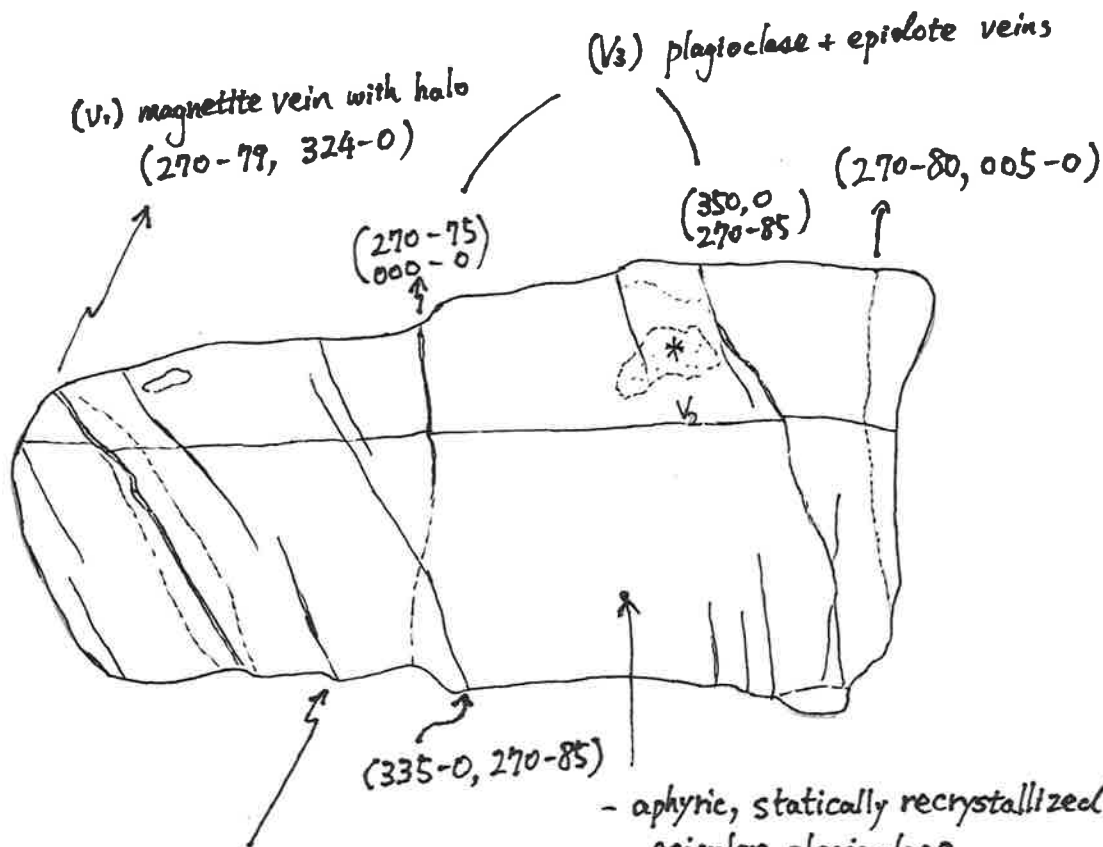 (V3) plagioclase + epidote veins
(V1) magnetite vein with halo
(270-79, 324-0)
(270-75)
000-0
(350, 0)
270-85
(270-80, 005-0)
*
V2
(335-0, 270-85)
- aphyric, statically recrystallized
acicular plagioclase